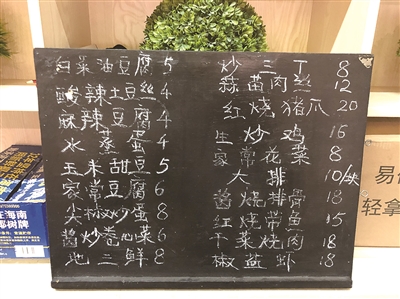 白菜油豆腐 5
酸辣土豆丝 4
麻辣豆腐 4
水蒸蛋 4
玉米甜豆 5
家常豆腐 6
大椒炒蛋 8
酱炒卷心菜 6
地三鲜 8
炒三丁 8
蒜苗肉丝 12
红烧猪爪 20
生炒鸡 16
家常花菜 8
大排 10/块
酱烧排骨 18
红烧带鱼 15
干菜烧肉 18
椒盐虾 18
在海南
椰树牌
易
轻拿